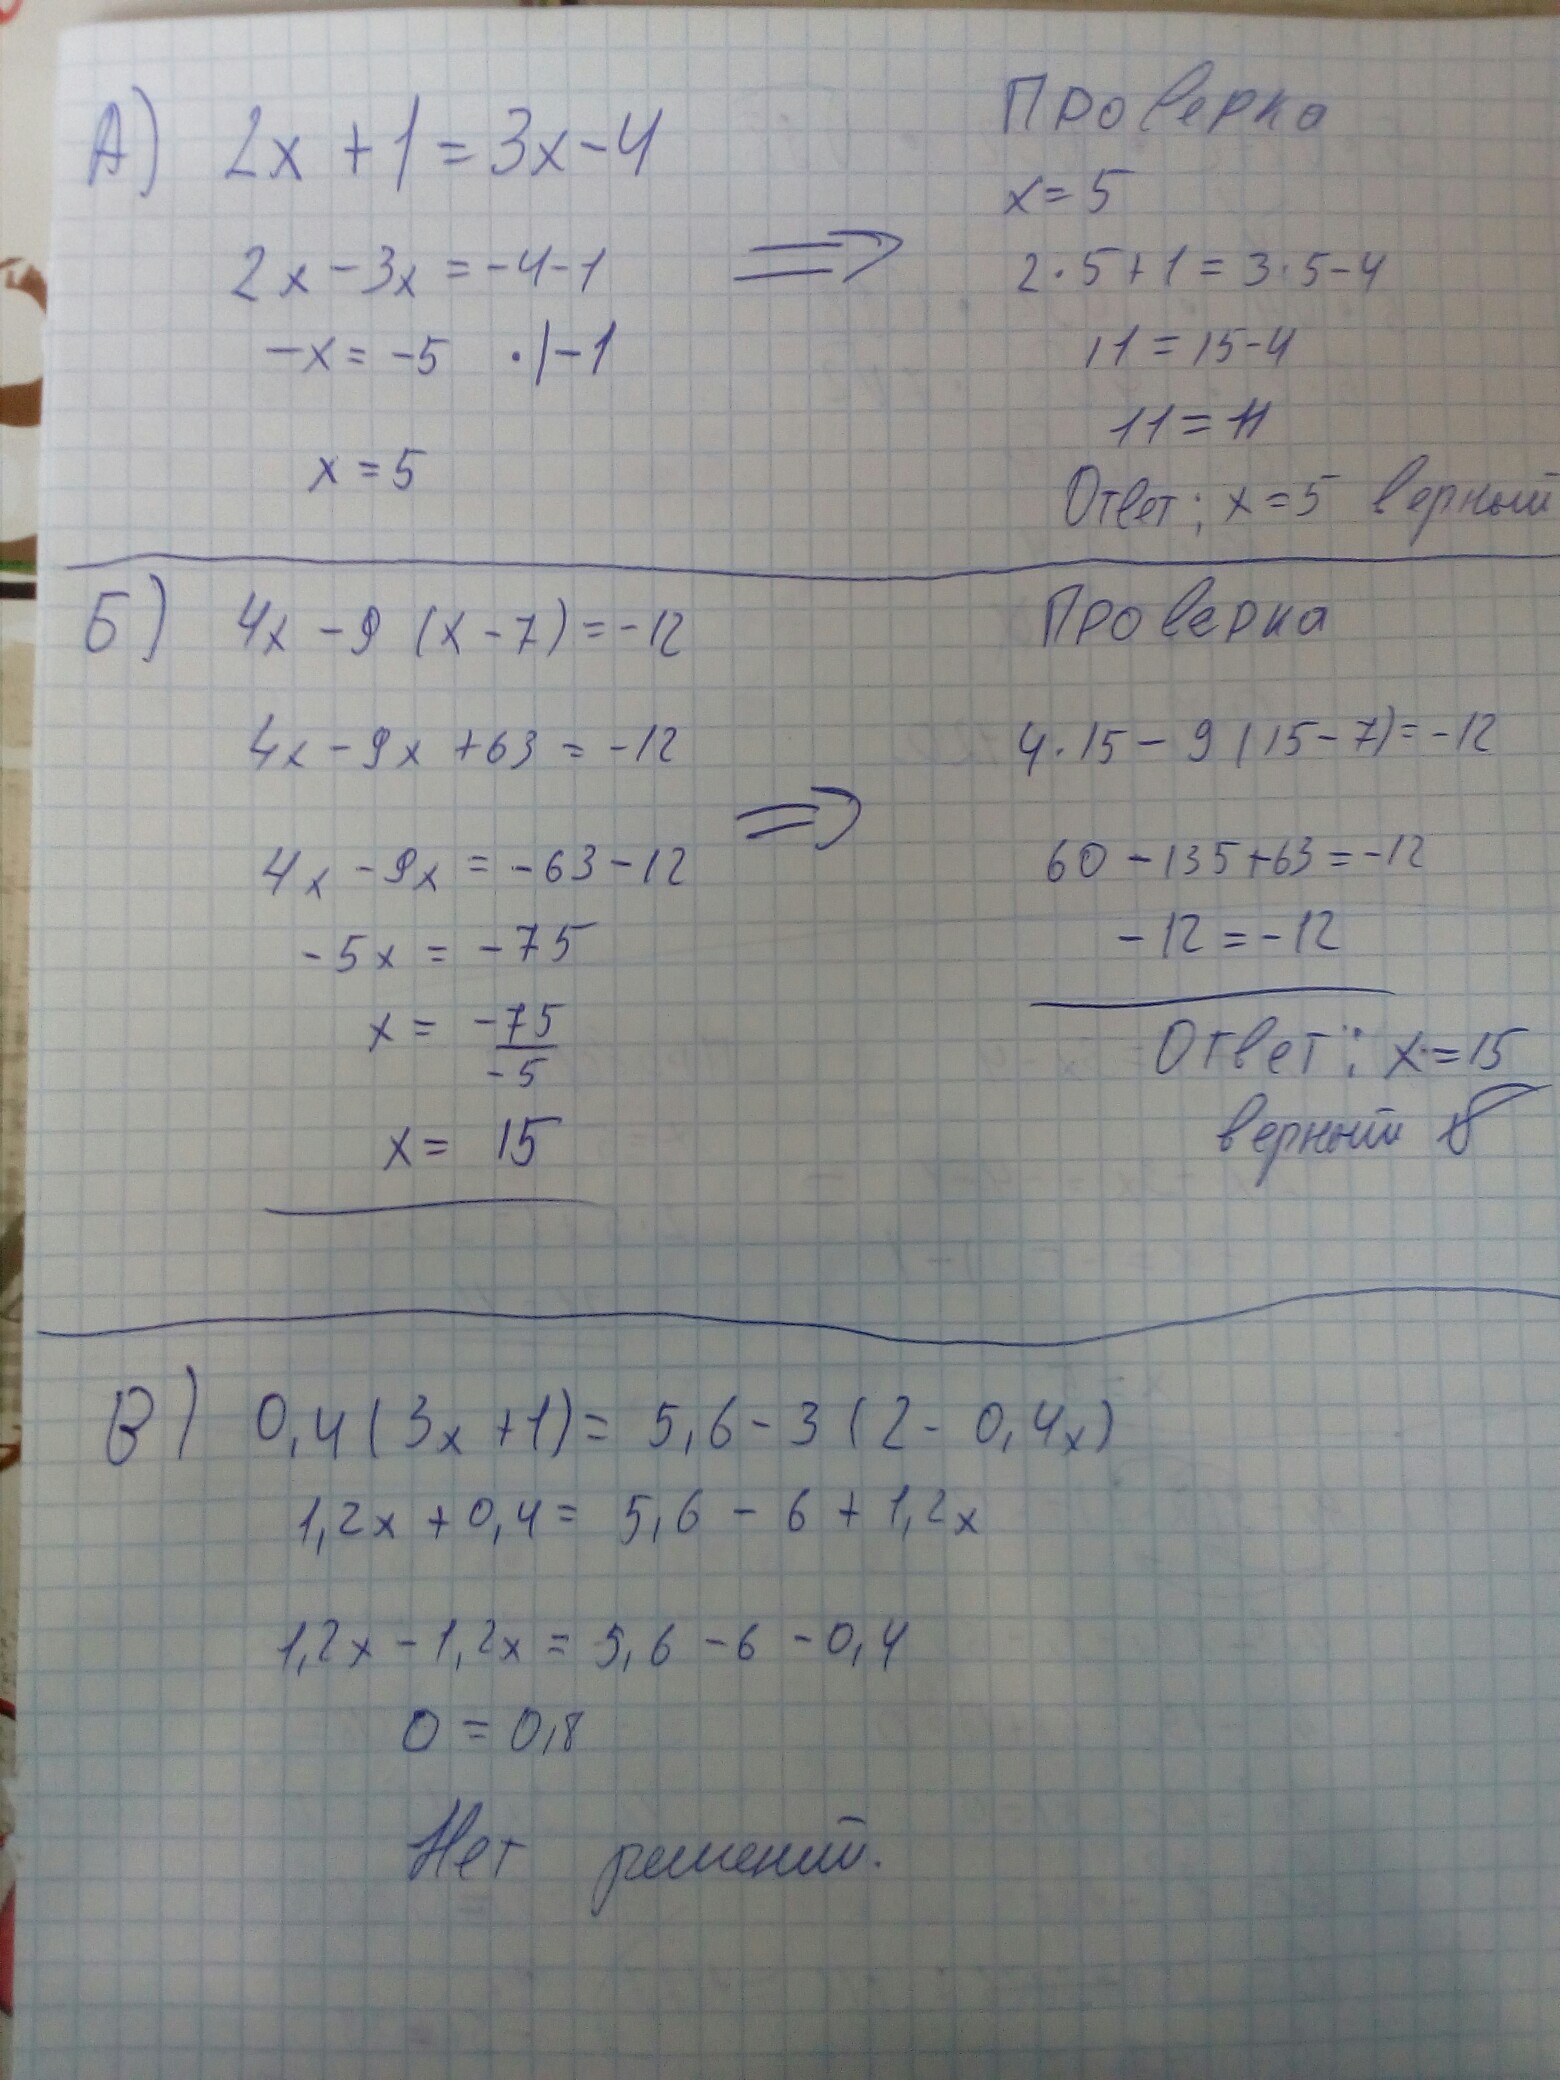 А) 2x + 1 = 3x - 4
2x - 3x = -4 - 1
-x = -5 ·|-1
x = 5
=>
Проверка
x = 5
2·5 + 1 = 3·5 - 4
11 = 15 - 4
11 = 11
Ответ: x = 5 верный
Б) 4x - 9 (x - 7) = -12
4x - 9x + 63 = -12
4x - 9x = -63 - 12
-5x = -75
x = -75/-5
x = 15
=>
Проверка
4·15 - 9 (15 - 7) = -12
60 - 135 + 63 = -12
-12 = -12
Ответ: x = 15
верный
В) 0,4 (3x + 1) = 5,6 - 3 (2 - 0,4x)
1,2x + 0,4 = 5,6 - 6 + 1,2x
1,2x - 1,2x = 5,6 - 6 - 0,4
0 = 0,8
Нет решений.